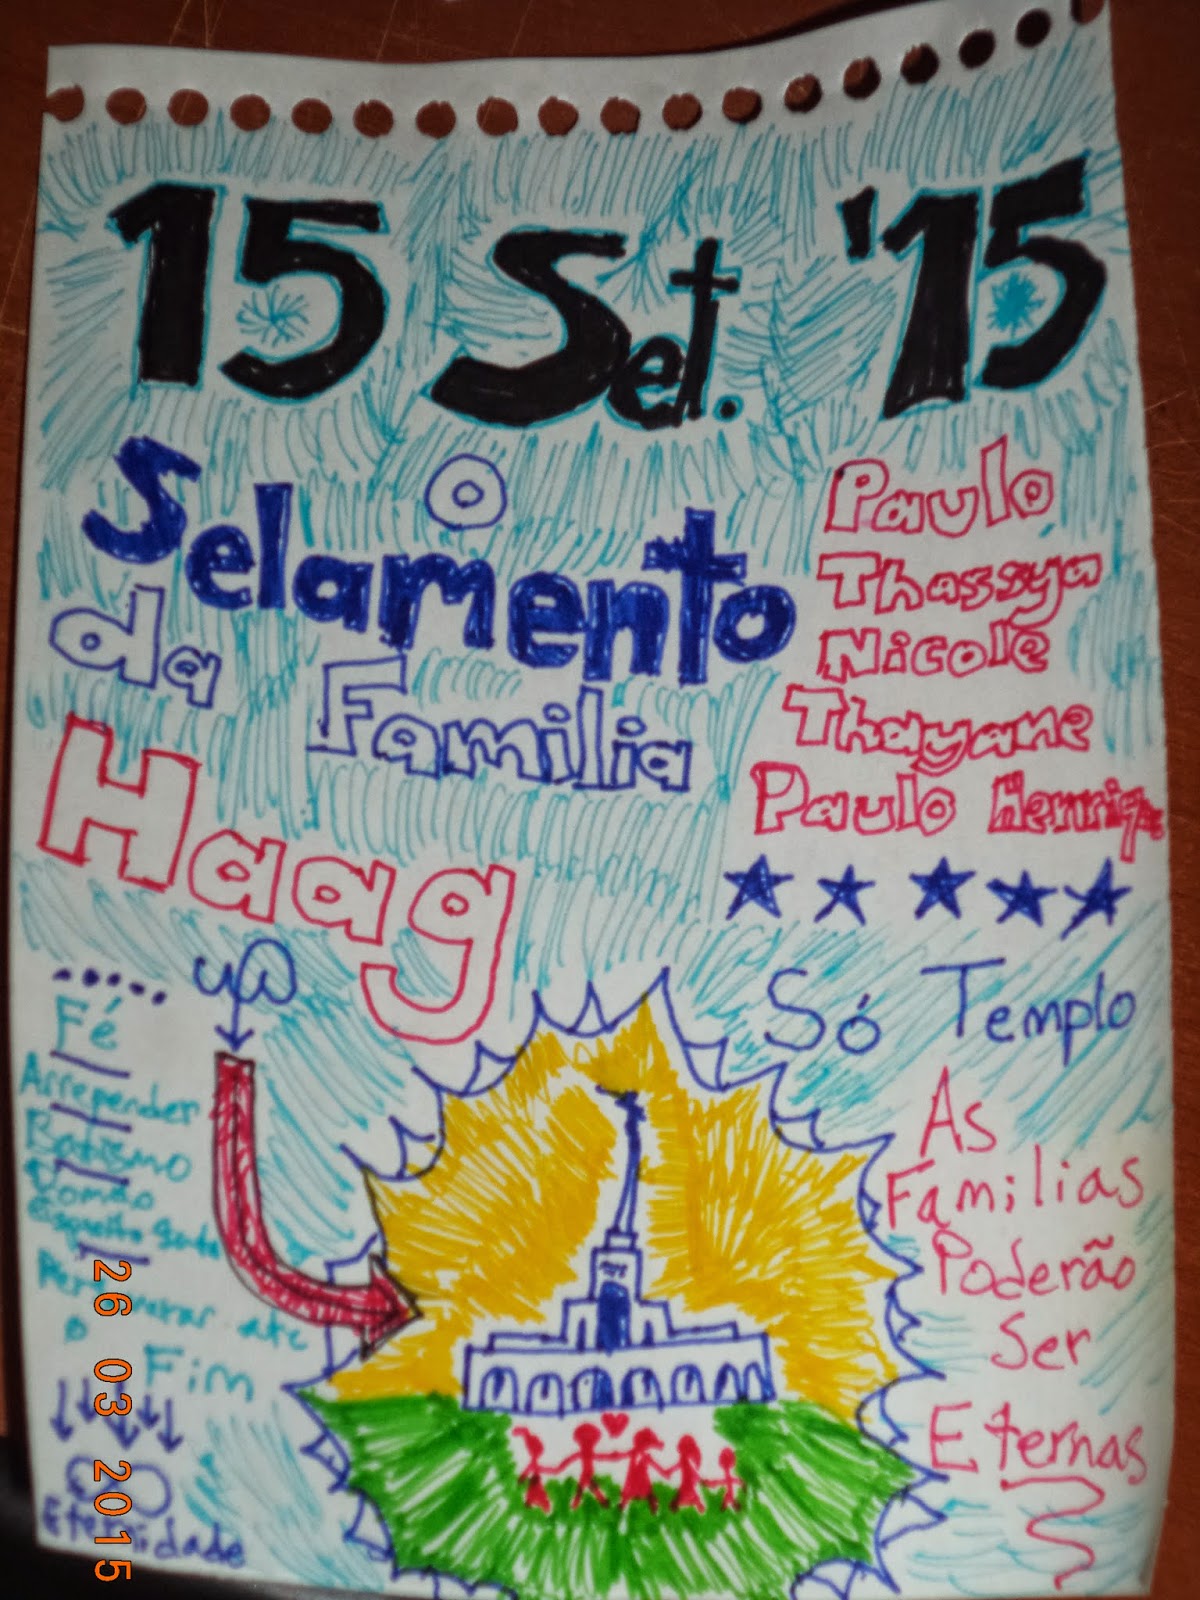 15 Set. '15
O
Selamento
da Familia
Haag
Paulo
Thassya
Nicole
Thayane
Paulo Henriq
Só Templo
As
Familias
Poderão
Ser
Eternas
Fé
Arrepender
Batismo
Espirito
ate
o
Fim
Eternidade
26 03 2015